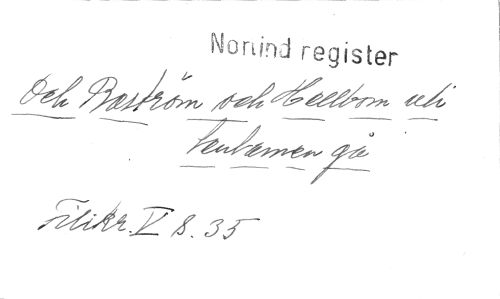 Norlind register
Och Boström och Hellbom uti
tentamen gå
Filikr. V s. 35